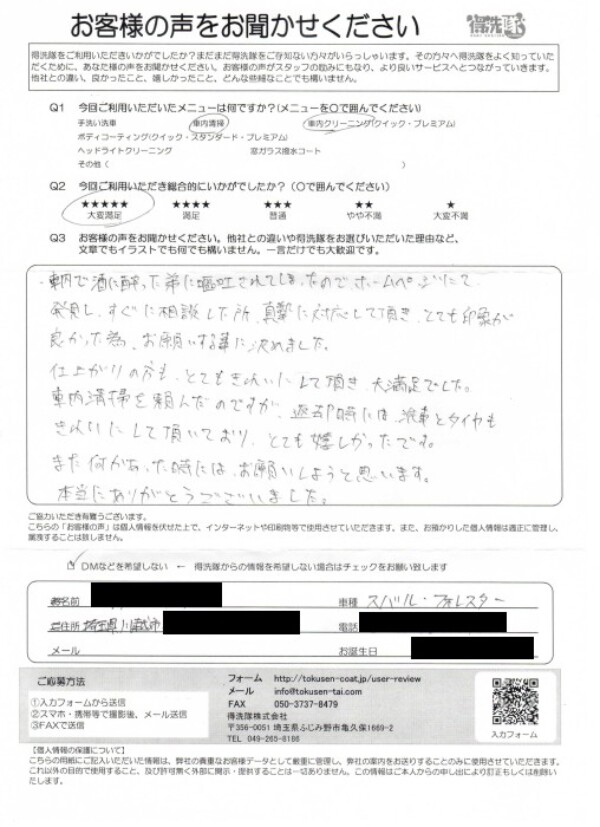 お客様の声をお聞かせください
得洗隊
得洗隊をご利用いただきいかがでしたか？まだまだ得洗隊をご存知ない方々がいらっしゃいます。その方々へ得洗隊をよく知っていた
だくために、あなた様の声をお聞かせください。お客様の声がスタッフの励みにもなり、より良いサービスへとつながっていきます。
他社との違い、良かったこと、嬉しかったこと、どんな些細なことでも構いません。
Q1 今回ご利用いただいたメニューは何ですか？（メニューを〇で囲んでください）
手洗い洗車 車内清掃 車内クリーニング（クイック・プレミアム）
ボディコーティング（クイック・スタンダード・プレミアム）
ヘッドライトクリーニング 窓ガラス撥水コート
その他（ ）
Q2 今回ご利用いただき総合的にいかがでしたか？（〇で囲んでください）
★★★★★ ★★★★ ★★★ ★★ ★
大変満足 満足 普通 やや不満 大変不満
Q3 お客様の声をお聞かせください。他社との違いや得洗隊をお選びいただいた理由など、
文章でもイラストでも何でも構いません。一言だけでも大歓迎です。
車内で酒に酔った弟に嘔吐されてしまったので、ホームページにて
発見し、すぐに相談した所、真摯に対応して頂き、とても印象が
良かった為、お願いする事に決めました。
仕上がりの方も、とてもきれいにして頂き、大満足でした。
車内清掃を頼んだのですが、返却時には、洗車とタイヤも
きれいにして頂いており、とても嬉しかったです。
また何かあった時には、お願いしようと思います。
本当にありがとうございました。
ご協力いただき有難うございます。
こちらの「お客様の声」は個人情報を伏せた上で、インターネットや印刷物等で使用させていただきます。また、お預かりした個人情報は適正に管理し、
漏洩することは致しません。
DMなどを希望しない ← 得洗隊からの情報を希望しない場合はチェックをお願い致します
お名前 車種 スバル・フォレスター
ご住所 埼玉県川越市 電話
メール お誕生日
ご応募方法
①入力フォームから送信
②スマホ・携帯等で撮影後、メール送信
③FAXで送信
フォーム http://tokusen-coat.jp/user-review
メール info@tokusen-tai.com
FAX 050-3737-8479
得洗隊株式会社
〒356-0051 埼玉県ふじみ野市亀久保1669-2
TEL 049-265-6186
入力フォーム
【個人情報の保護について】
こちらの用紙にご記入いただいた情報は、弊社の貴重なお客様データとして厳重に管理し、弊社の案内をお送りすることのみに使用させていただきます。
これ以外の目的で使用すること、及び許可無く外部に開示・提供することは一切ありません。この情報はご本人からの申し出により訂正もしくは削除い
たします。